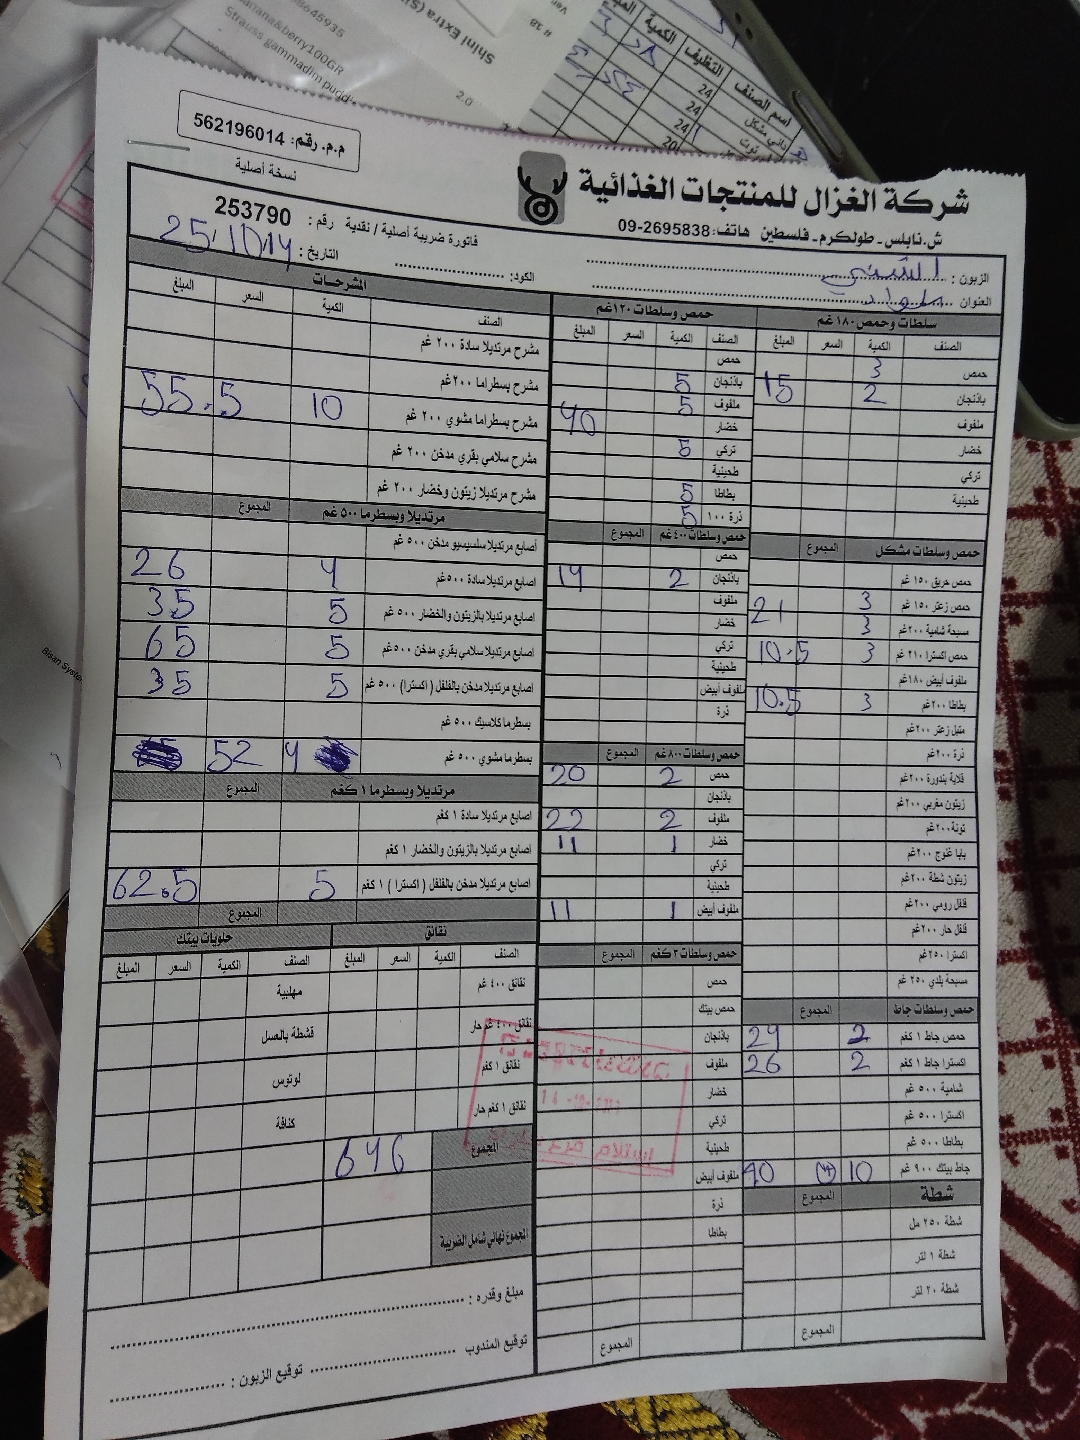 م.م. رقم: 562196014
نسخة أصلية
شركة الغزال للمنتجات الغذائية
ش.نابلس - طولكرم - فلسطين هاتف: 09-2695838
فاتورة ضريبة أصلية / نقدية رقم: 253790
التاريخ: 25/10/14
الكود:
الزبون:
العنوان
سلطات وحمص ١٨٠غم
الصنف الكمية السعر المبلغ
حمص 3
باذنجان 2 15
ملفوف
خضار
تركي
طحينية
حمص وسلطات مشكل المجموع
حمص حريق ١٥٠ غم
حمص زعتر ١٥٠ غم 3 21
مسبحة شامية ٢٠٠غم 3
حمص اكسترا ٢١٠ غم 3 10.5
ملفوف أبيض ١٨٠غم
بطاطا ٢٠٠غم 3 10.5
متبل زعتر ٢٠٠غم
ذرة ٢٠٠غم
قلاية بندورة ٢٠٠غم
زيتون مغربي ٢٠٠غم
تونة ٢٠٠غم
بابا غنوج ٢٠٠غم
زيتون شطة ٢٠٠غم
فلفل رومي ٢٠٠غم
فلفل حار ٢٠٠غم
اكسترا ٢٥٠غم
مسبحة بلدي ٢٥٠ غم
حمص وسلطات جاط المجموع
حمص جاط ١ كغم 2 24
اكسترا جاط ١ كغم 2 26
شامية ٥٠٠ غم
اكسترا ٥٠٠ غم
بطاطا ٥٠٠ غم
جاط بيتك ٩٠٠ غم 10 (4) 40
شطة المجموع
شطة ٢٥٠ مل
شطة ١ لتر
شطة ٢٠ لتر
المجموع
حمص وسلطات ١٢٠غم
الصنف الكمية السعر المبلغ
حمص
باذنجان 5
ملفوف 5
خضار 40
تركي 5
طحينية
بطاطا 5
ذرة ١٠٠ 5
حمص وسلطات ٤٠٠غم المجموع
حمص
باذنجان 2 14
ملفوف
خضار
تركي
طحينية
ملفوف أبيض
ذرة
حمص وسلطات ٨٠٠غم المجموع
حمص 2 20
باذنجان
ملفوف 2 22
خضار 1 11
تركي
طحينية
ملفوف أبيض 1 11
حمص وسلطات ٣كغم المجموع
حمص
حمص بيتك
باذنجان
ملفوف
خضار
تركي
طحينية
ملفوف أبيض
ذرة
بطاطا
المجموع
المشرحات
الصنف الكمية السعر المبلغ
مشرح مرتديلا سادة ٢٠٠ غم
مشرح بسطراما ٢٠٠غم
مشرح بسطراما مشوي ٢٠٠ غم 10 55.5
مشرح سلامي بقري مدخن ٢٠٠ غم
مشرح مرتديلا زيتون وخضار ٢٠٠ غم
مرتديلا وبسطرما ٥٠٠ غم المجموع
أصابع مرتديلا سلسيسيو مدخن ٥٠٠ غم
اصابع مرتديلا سادة ٥٠٠غم 4 26
اصابع مرتديلا بالزيتون والخضار ٥٠٠ غم 5 35
اصابع مرتديلا سلامي بقري مدخن ٥٠٠غم 5 65
اصابع مرتديلا مدخن بالفلفل (اكسترا) ٥٠٠ غم 5 35
بسطرما كلاسيك ٥٠٠ غم
بسطرما مشوي ٥٠٠ غم 4 52
مرتديلا وبسطرما ١ كغم المجموع
اصابع مرتديلا سادة ١ كغم
اصابع مرتديلا بالزيتون والخضار ١ كغم
اصابع مرتديلا مدخن بالفلفل (اكسترا) ١ كغم 5 62.5
المجموع
نقانق
الصنف الكمية السعر المبلغ
نقانق ٤٠٠ غم
نقانق ٤٠٠ غم حار
نقانق ١ كغم
نقانق ١ كغم حار
حلويات بيتك
الصنف الكمية السعر المبلغ
مهلبية
قشطة بالعسل
لوتوس
كنافة
المجموع 646
المجموع نهائي شامل الضريبة
مبلغ وقدره:
توقيع المندوب
توقيع الزبون:
اسم الصنف
التظيف
الكمية
Shini Extra
Strauss gammadim
2.0